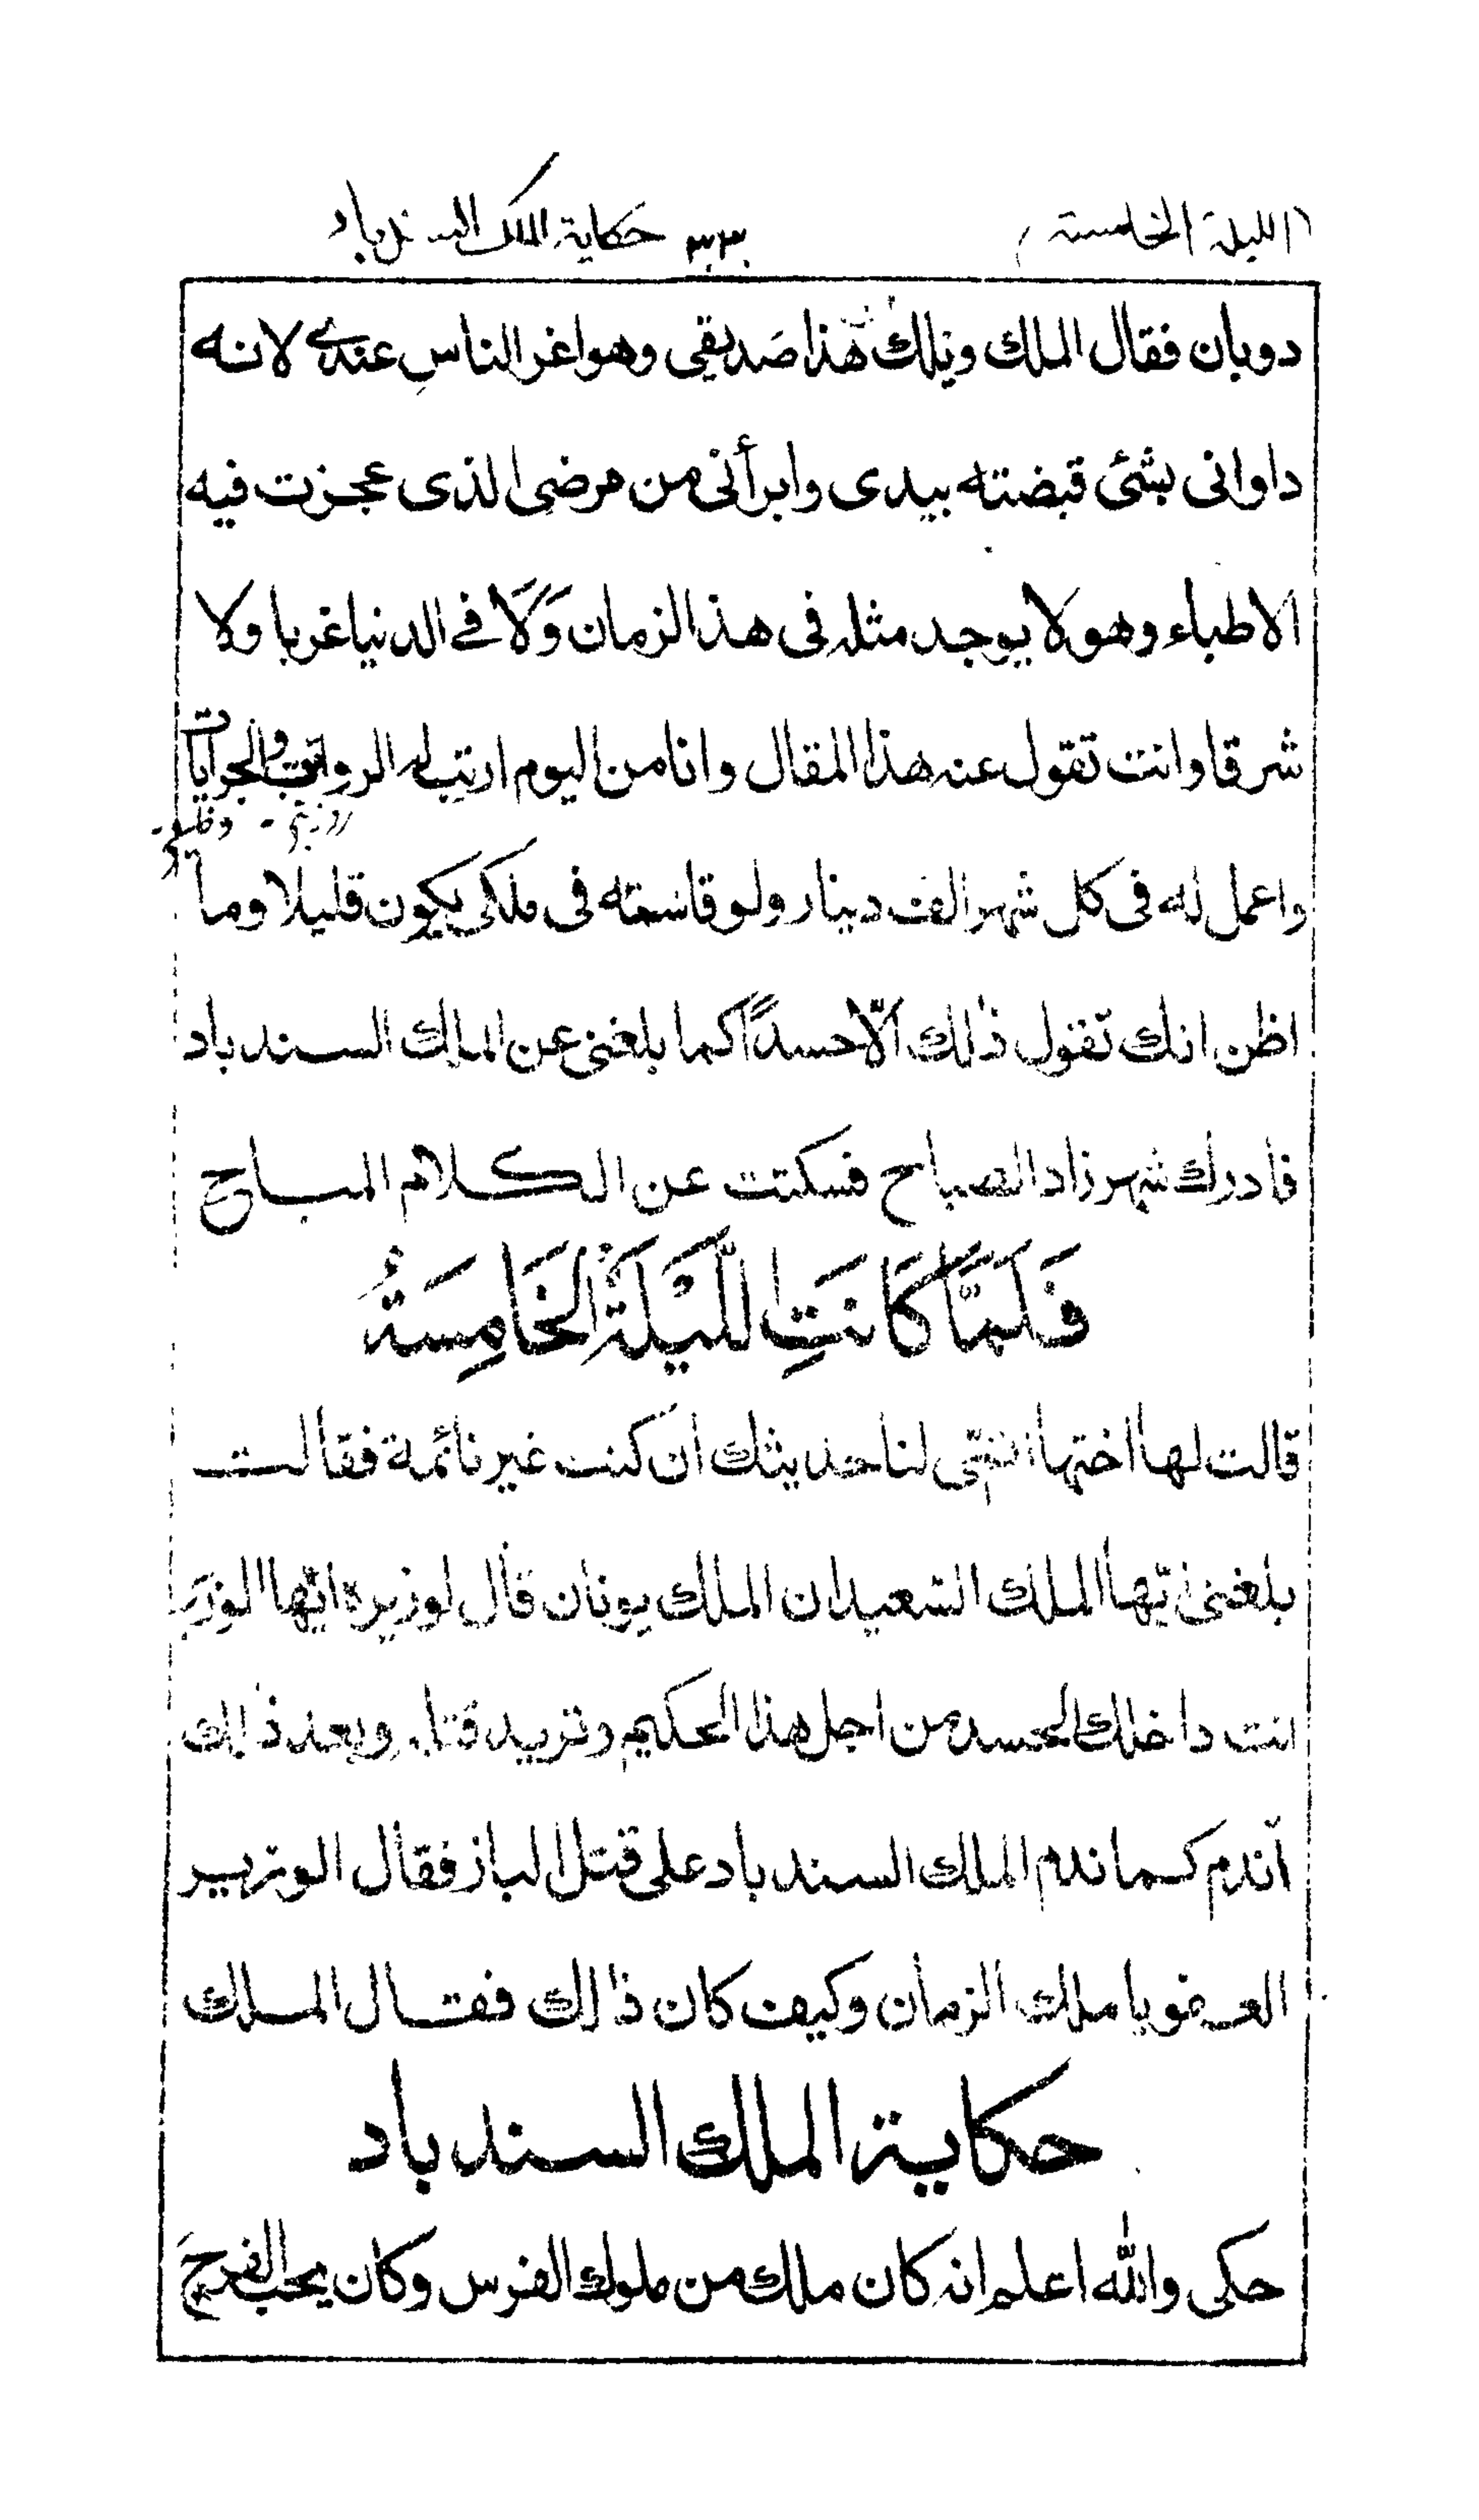 الليلة الخامسة ٣٣ حكاية الملك السندباد
دوبان فقال الملك ويلك هذا صديقي وهو اعز الناس عندي لانه
داواني بشئ قبضته بيدى وابرأنى من مرضي الذى عجزت فيه
الاطباء وهو لا يوجد مثله فى هذا الزمان وَلَا في الدنيا غربا ولا
شرقا وانت تقول عنه هذا المقال وانا من اليوم ارتب له الرواتب والجرايات
واعمل له فى كل شهر الف دينار ولو قاسمته فى ملكى يكون قليلا وما
اظن انك تقول ذلك الّا حسداً كما بلغنى عن الملك السندباد
فادرك شهرزاد الصباح فسكتت عن الكلام المباح
فَلَمَّا كَانَتِ اللَّيْلَةُ الْخَامِسَةُ
قالت لها اختها اتمّى لنا حديثك ان كنت غير نائمة فقالت
بلغنى ايّها الملك السعيد ان الملك يونان قال لوزيره ايّها الوزير
انت داخلك الحسد من اجل هذا الحكيم وتريد قتله وبعد ذلك
اندم كما ندم الملك السندباد على قتل الباز فقال الوزير
العفو يا ملك الزمان وكيف كان ذلك فقال الملك
حكاية الملك السندباد
حكى والله اعلم انه كان ملك من ملوك الفرس وكان يحب الفرج